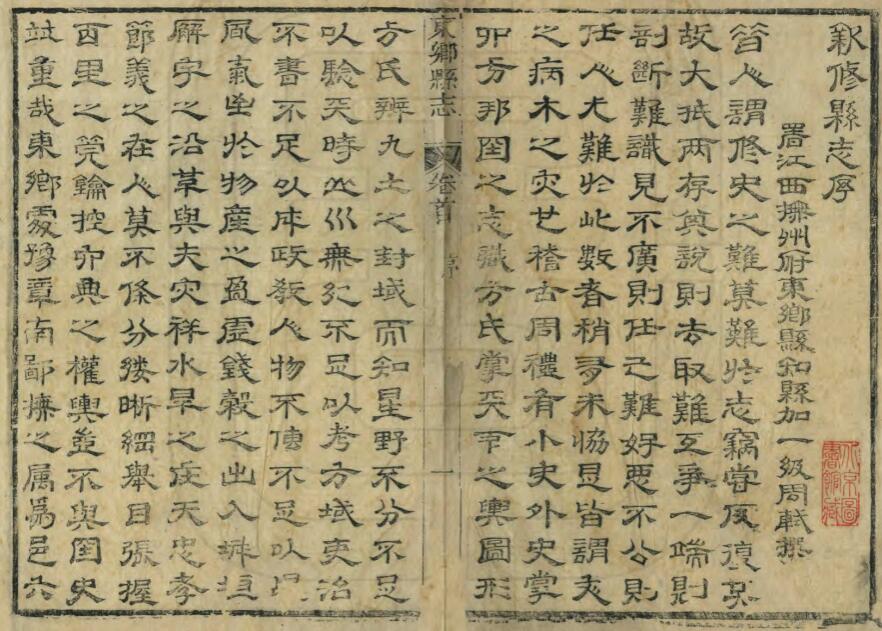 新修縣志序
署江西撫州府東鄉縣知縣加一級周軾撰
昔人謂修史之難莫難於志竊嘗反復其
故大抵兩存其說則去取難互爭一端則
剖斷難識見不廣則任己難好惡不公則
任人尤難於此數者稍有未協是皆謂夫
之病木之灾也稽古周禮有小史外史掌
四方邦國之志職方氏掌天下之輿圖形
東鄉縣志 卷首 序 一
方氏辨九土之封域而知星野不分不足
以驗天時山川無紀不足以考方域吏治
不書不足以本政教人物不傳不足以
風氣至於物產之盈虛錢穀之出入城垣
廨字之沿革與夫灾祥水旱之在天忠孝
節義之在人莫不條分縷晰綱舉目張握
百里之筦鑰控四興之權輿並不與國史
竝重哉東鄉處豫章南鄙撫之屬爲邑六
北京圖書館藏